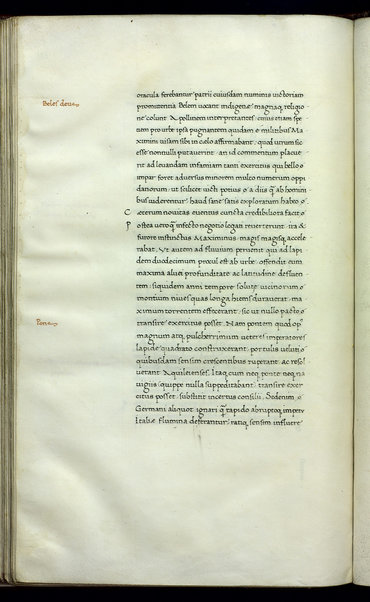 oracula ferebantur patrii cuiusdam numinis uictoriam
Beles deus
promittentia Belem uocant indigenę magnaq religio
ne colunt & apollinem interpretantes cuius etiam spe
tiem pro urbe ipsa pugnantem quidam e militibus Ma
ximini uisam sibi in cælo affirmabant quod utrum sic
esse nonnulli putauerint an id commentum placue
rit ad leuandam infamiam tanti exercitus qui bello
impar foret aduersus minorem multo numerum oppi
danorum ut scilicet uicti potius a diis q̃ ab homini
bus uiderentur haud sane satis exploratum habeo
C æterum nouitas euentus cuncta credibiliora facit
P ostea uero q̃ infecto negotio legati reuerterunt ira &
furore instinctus Maximinus magis magisq accele
rabat. Vt autem ad fluuium peruenit qui ad lapi
dem duodecimum procul est ab urbe offendit eum
maxima aluei profunditate ac latitudine defluen
tem siquidem anni tempore solutę uicinorum
montium niues quas longa hiems durauerat ma
ximum torrentem effecerant sic ut nullo pacto
Pons
transire exercitus posset. Nam pontem quod op
magnum atq pulcherrimum ueteres imperatores
lapide quadrato construxerant portulis uelut
quibusdam sensim crescentibus ruperant ac resol
uerant Aquileienses. Itaq cum neq ponte neq na
uigiis quippe nulla suppeditabant transire exer
citus posset substitit incertus consilii. Sed enim
Germani aliquot ignari q̃ rapido abruptoq impetu
Italię flumina deferantur ratiq sensim influere